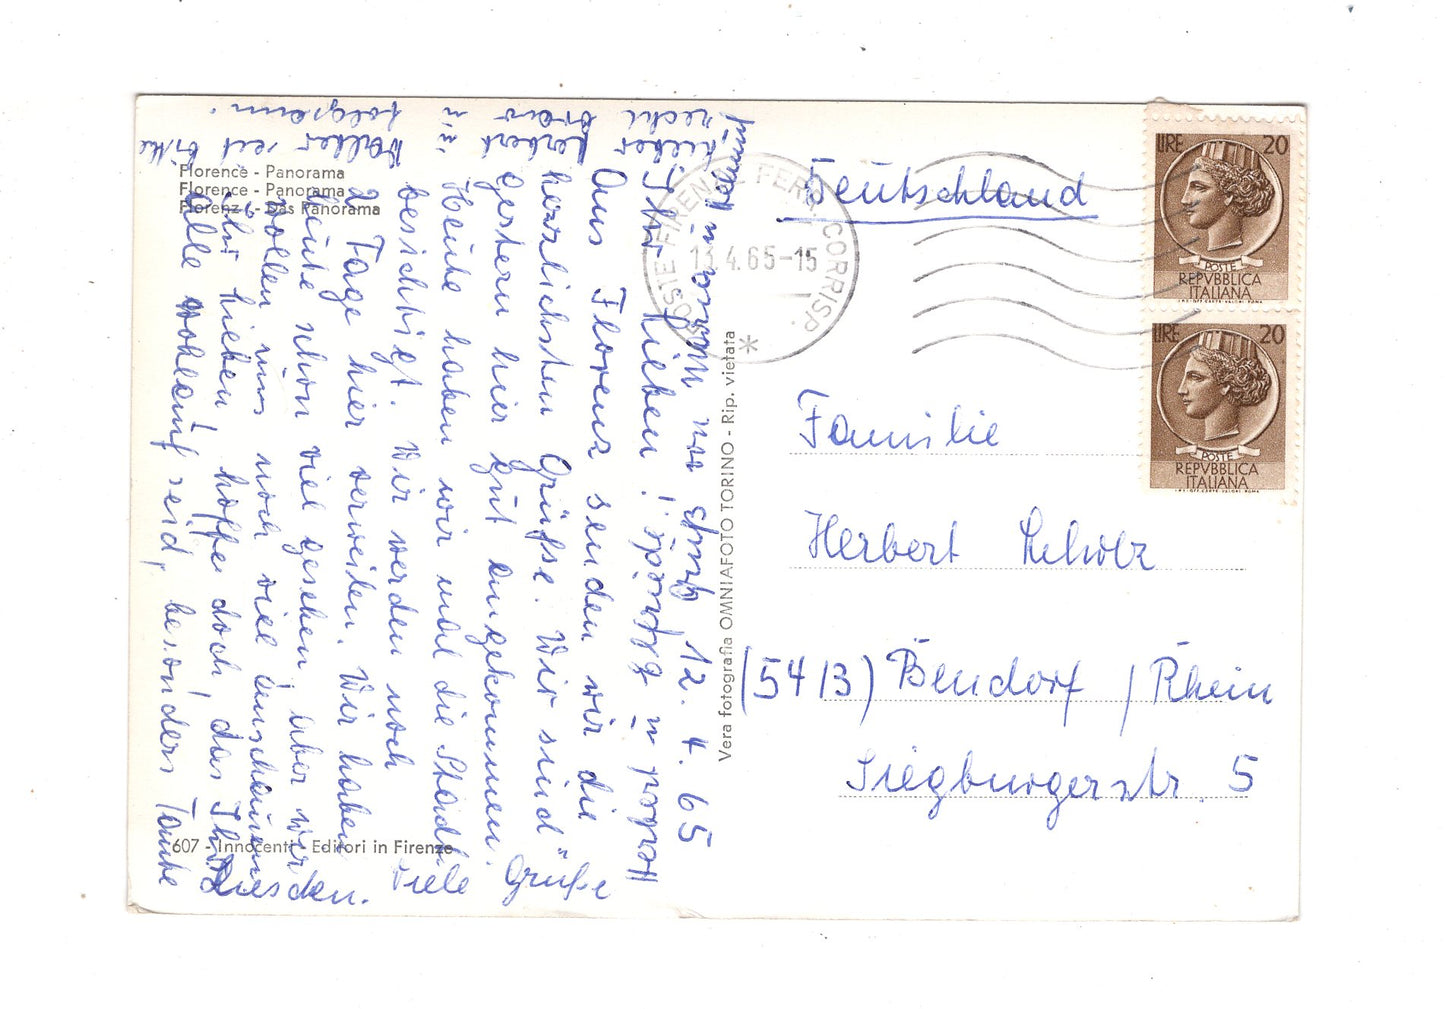 Florence - Panorama
Florence - Panorama
Florenz - Das Panorama
12. 4. 65
Ihr Lieben!
Aus Florenz senden wir die
herzlichsten Grüße. Wir sind
gestern hier gut angekommen.
Heute haben wir mal die Stadt
besichtigt. Wir werden noch
2 Tage hier verweilen. Wir haben
heute schon viel gesehen, aber wir
wollen uns noch viel anschauen
Ihr Lieben, hoffe doch, das Ihr
Alle wohlauf seid, besonders Tante
Lieber Herbert u.
Walter seid bitte
recht brav u.
folgsam.
Viele Grüße
Vera fotografia OMNIAFOTO TORINO - Rip. vietata
607 - Innocenti - Editori in Firenze
POSTE FIRENZE FERR. CORRISP.
13.4.65-15
LIRE 20
POSTE
REPVBBLICA
ITALIANA
I.P.S.-OFF. CARTE VALORI ROMA
LIRE 20
POSTE
REPVBBLICA
ITALIANA
I.P.S.-OFF. CARTE VALORI ROMA
Deutschland
Familie
Herbert Scholz
(5413) Bendorf / Rhein
Siegburgerstr. 5